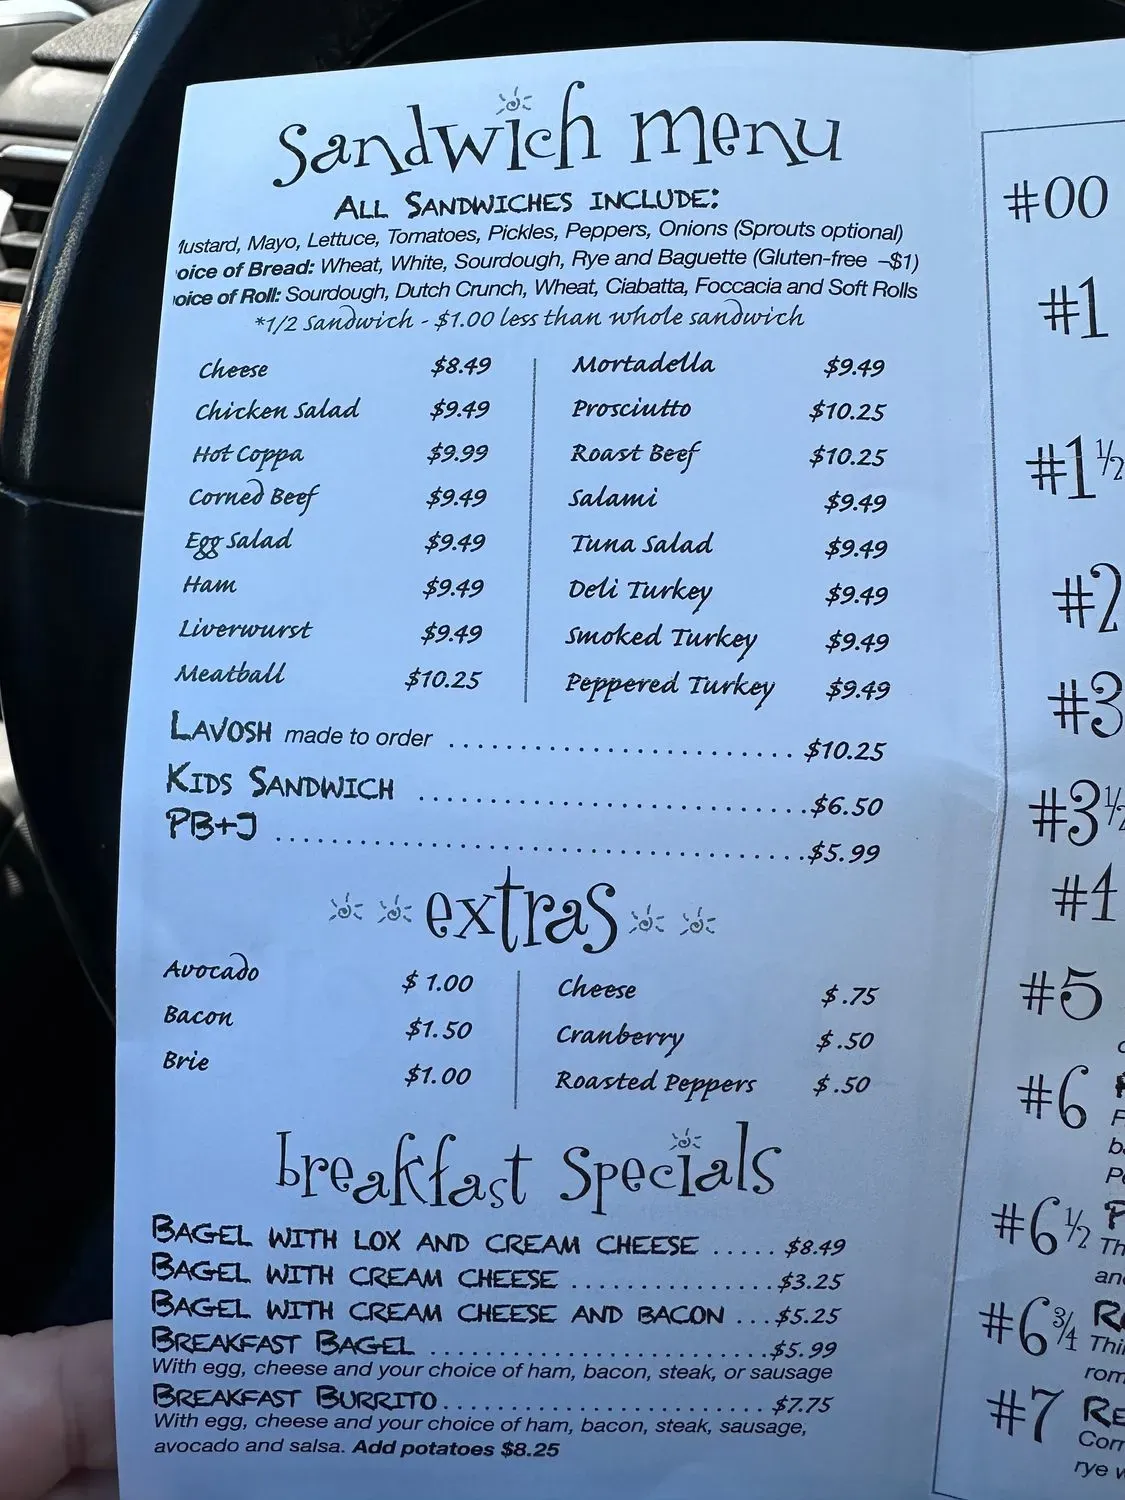 Sandwich menu
ALL SANDWICHES INCLUDE:
Mayo, Lettuce, Tomatoes, Pickles, Peppers, Onions (Sprouts optional)
of Bread: Wheat, White, Sourdough, Rye and Baguette (Gluten-free –$1)
of Roll: Sourdough, Dutch Crunch, Wheat, Ciabatta, Foccacia and Soft Rolls
*1/2 Sandwich - $1.00 less than whole sandwich
Cheese $8.49
Chicken Salad $9.49
Hot Coppa $9.99
Corned Beef $9.49
Egg Salad $9.49
Ham $9.49
Liverwurst $9.49
Meatball $10.25
Mortadella $9.49
Prosciutto $10.25
Roast Beef $10.25
Salami $9.49
Tuna Salad $9.49
Deli Turkey $9.49
Smoked Turkey $9.49
Peppered Turkey $9.49
LAVOSH made to order $10.25
KIDS SANDWICH $6.50
PB+J $5.99
extras
Avocado $1.00
Bacon $1.50
Brie $1.00
Cheese $.75
Cranberry $.50
Roasted Peppers $.50
breakfast Specials
BAGEL WITH LOX AND CREAM CHEESE ..... $8.49
BAGEL WITH CREAM CHEESE $3.25
BAGEL WITH CREAM CHEESE AND BACON ...$5.25
BREAKFAST BAGEL $5.99
With egg, cheese and your choice of ham, bacon, steak, or sausage
BREAKFAST BURRITO $7.75
With egg, cheese and your choice of ham, bacon, steak, sausage,
avocado and salsa. Add potatoes $8.25
#00
#1
#1½
#2
#3
#3½
#4
#5
#6
#6½
#6¾
#7